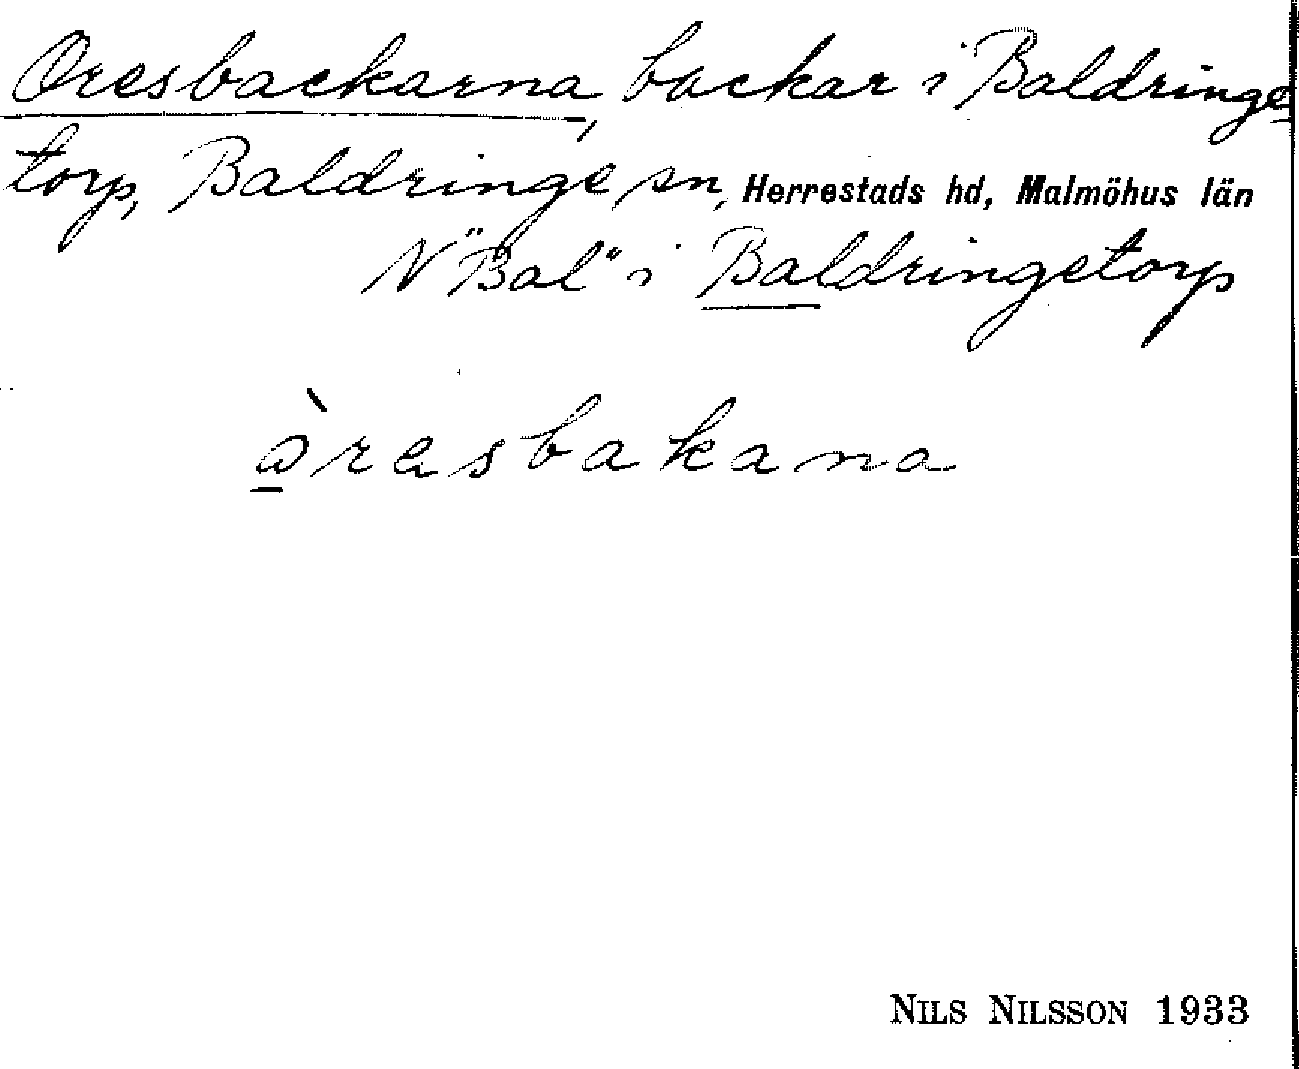 Oresbackarna, backar i Baldringe
torp, Baldringe sn, Herrestads hd, Malmöhus län
N "Bal" i Baldringetorp
òresbakana
NILS NILSSON 1933